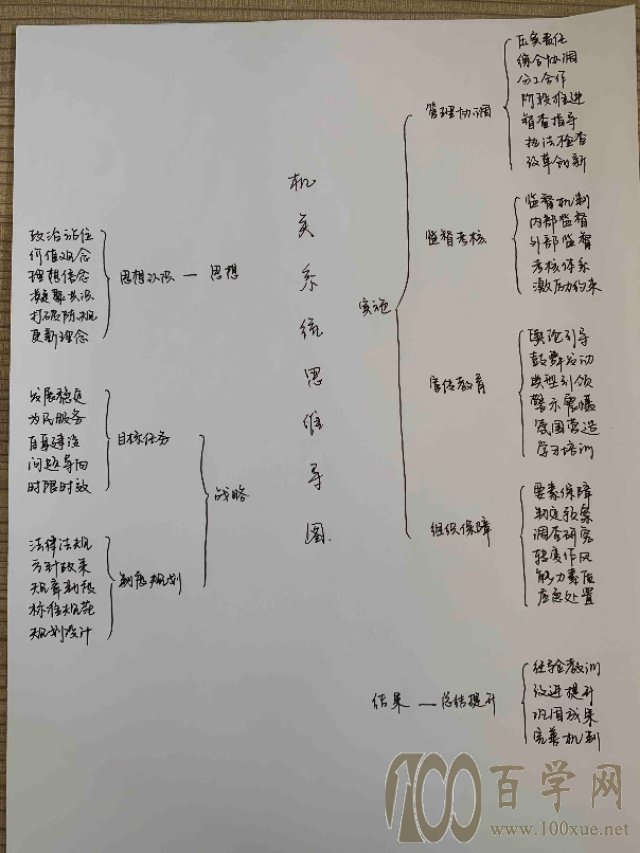 机关系统思维导图
政治站位
价值观念
理想信念
凝聚共识
打破陈规
更新理念
思想认识 — 思想
发展稳定
为民服务
自身建设
问题导向
时限时效
目标任务
法律法规
方针政策
规章制度
标准规范
规划设计
制度规划
战略
实施
管理协调
压实责任
综合协调
分工合作
阶段推进
督查指导
执法检查
改革创新
监督考核
监督机制
内部监督
外部监督
考核体系
激励约束
宣传教育
舆论引导
鼓舞发动
典型引领
警示震慑
氛围营造
学习培训
组织保障
要素保障
制定预案
调查研究
转变作风
能力素质
应急处置
结果 — 总结提升
经验教训
改进提升
巩固成果
完善机制
100百学网
www.100xue.net